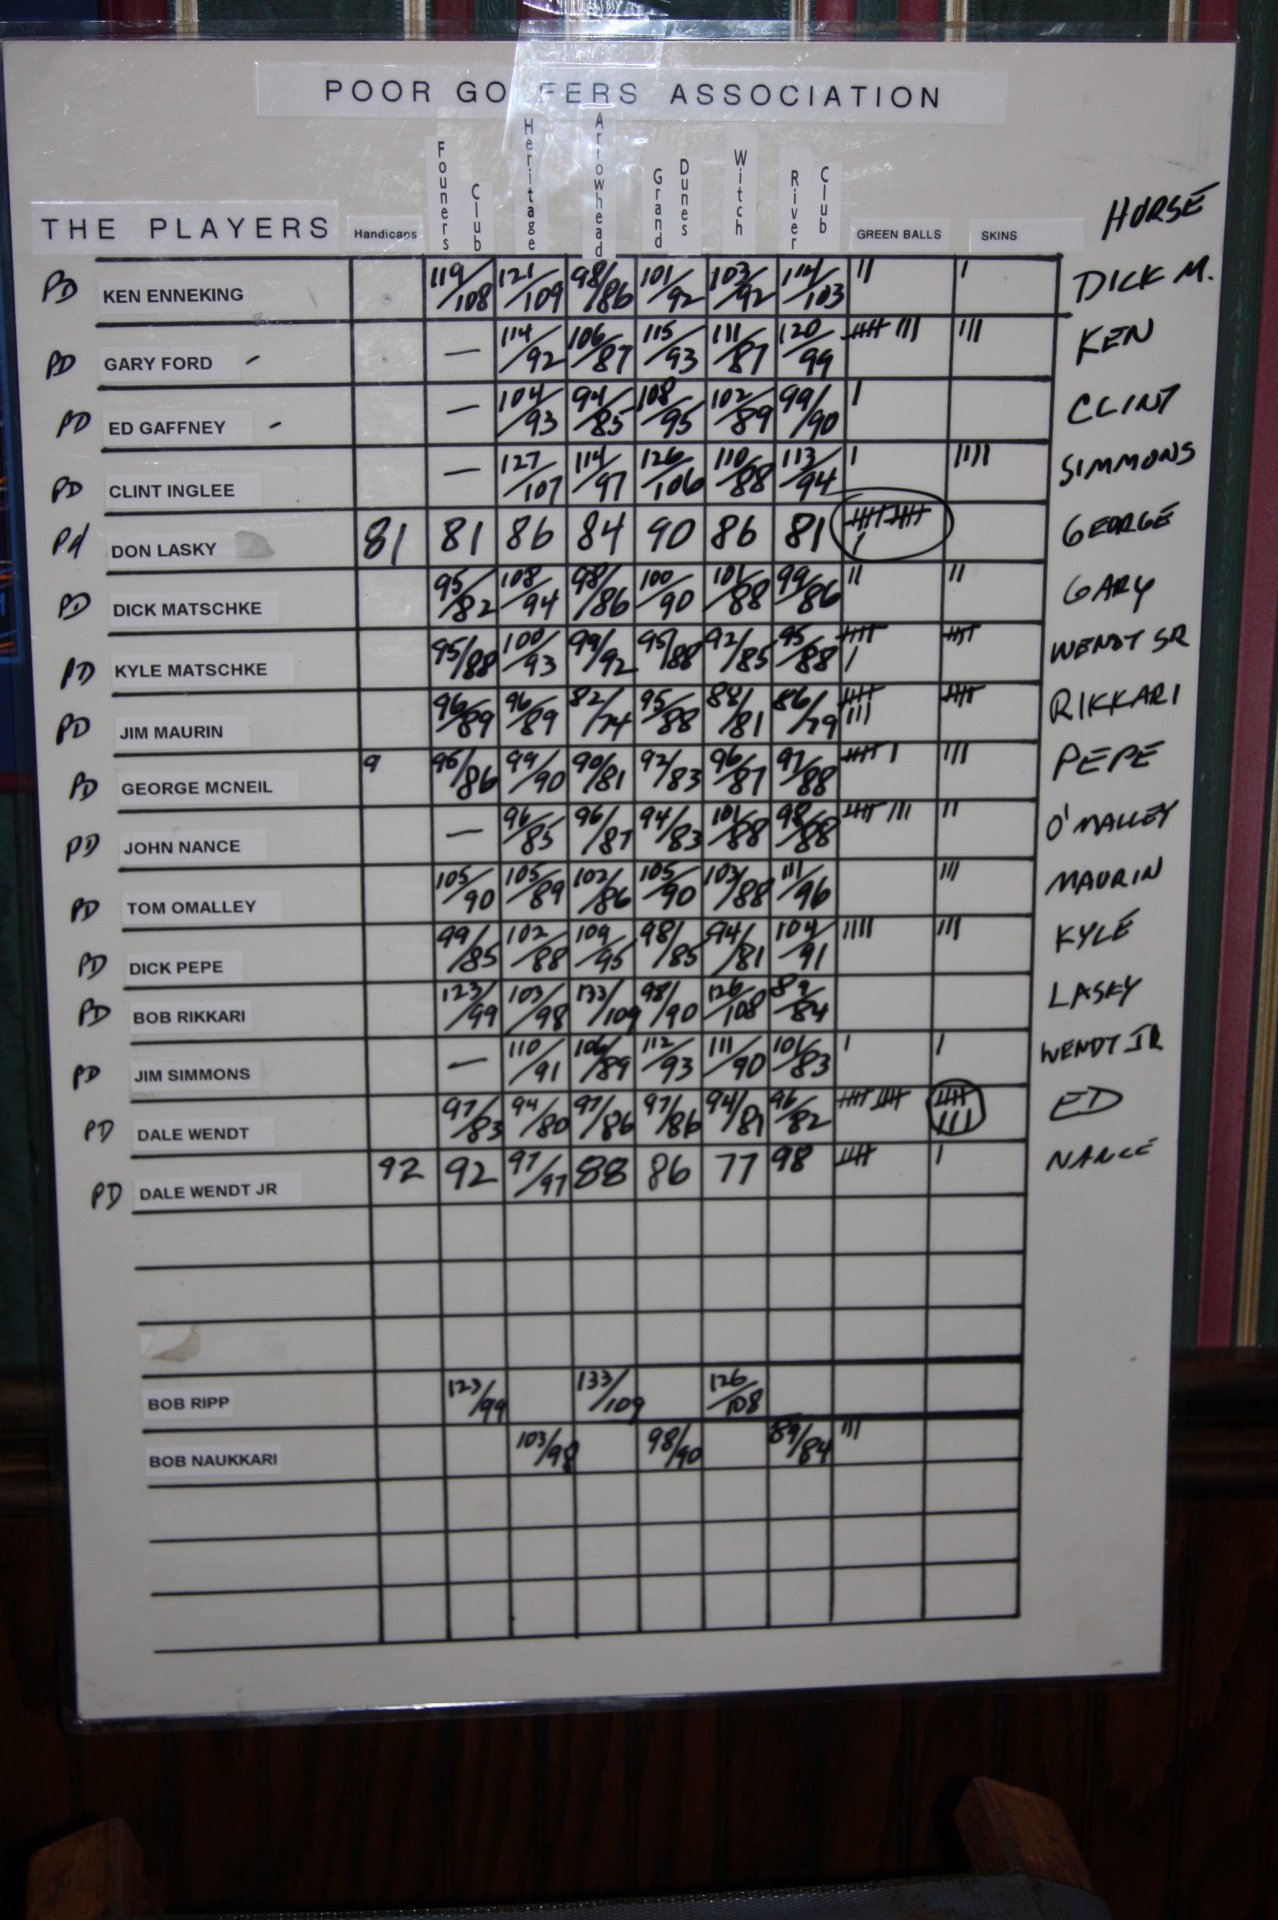 POOR GOLFERS ASSOCIATION
THE PLAYERS Handicaps Founers Club Heritage Arrowhead Grand Dunes Witch River Club GREEN BALLS SKINS HORSE
PD KEN ENNEKING 119/108 121/109 98/86 101/92 103/92 114/103 || | DICK M.
PD GARY FORD - — 114/92 106/87 115/93 111/87 120/99 |||| ||| ||| KEN
PD ED GAFFNEY - — 104/93 94/85 108/95 102/89 99/90 | CLINT
PD CLINT INGLEE — 127/107 114/97 126/106 110/88 113/94 | |||| SIMMONS
Pd DON LASKY 81 81 86 84 90 86 81 |||| |||| | GEORGE
PD DICK MATSCHKE 95/82 108/94 98/86 100/90 101/88 99/86 || || GARY
PD KYLE MATSCHKE 95/88 100/93 99/92 95/88 92/85 95/88 |||| | |||| WENDT SR
PD JIM MAURIN 96/89 96/89 82/74 95/88 88/81 86/79 |||| ||| |||| RIKKARI
PD GEORGE MCNEIL 9 95/86 99/90 90/81 92/83 96/87 97/88 |||| | ||| PEPE
PD JOHN NANCE — 96/85 96/87 94/83 101/88 98/88 |||| ||| || O'MALLEY
PD TOM OMALLEY 105/90 105/89 102/86 105/90 103/88 111/96 ||| MAURIN
PD DICK PEPE 99/85 102/88 109/95 98/85 94/81 104/91 |||| ||| KYLE
PD BOB RIKKARI 123/99 103/98 133/109 98/90 126/108 89/84 LASKY
PD JIM SIMMONS — 110/91 106/89 112/93 111/90 101/83 | | WENDT JR
PD DALE WENDT 97/83 94/80 97/86 97/86 94/81 96/82 |||| |||| |||| ||| ED
PD DALE WENDT JR 92 92 97/97 88 86 77 98 |||| | NANCE
BOB RIPP 123/99 133/109 126/108
BOB NAUKKARI 103/98 98/90 89/84 |||